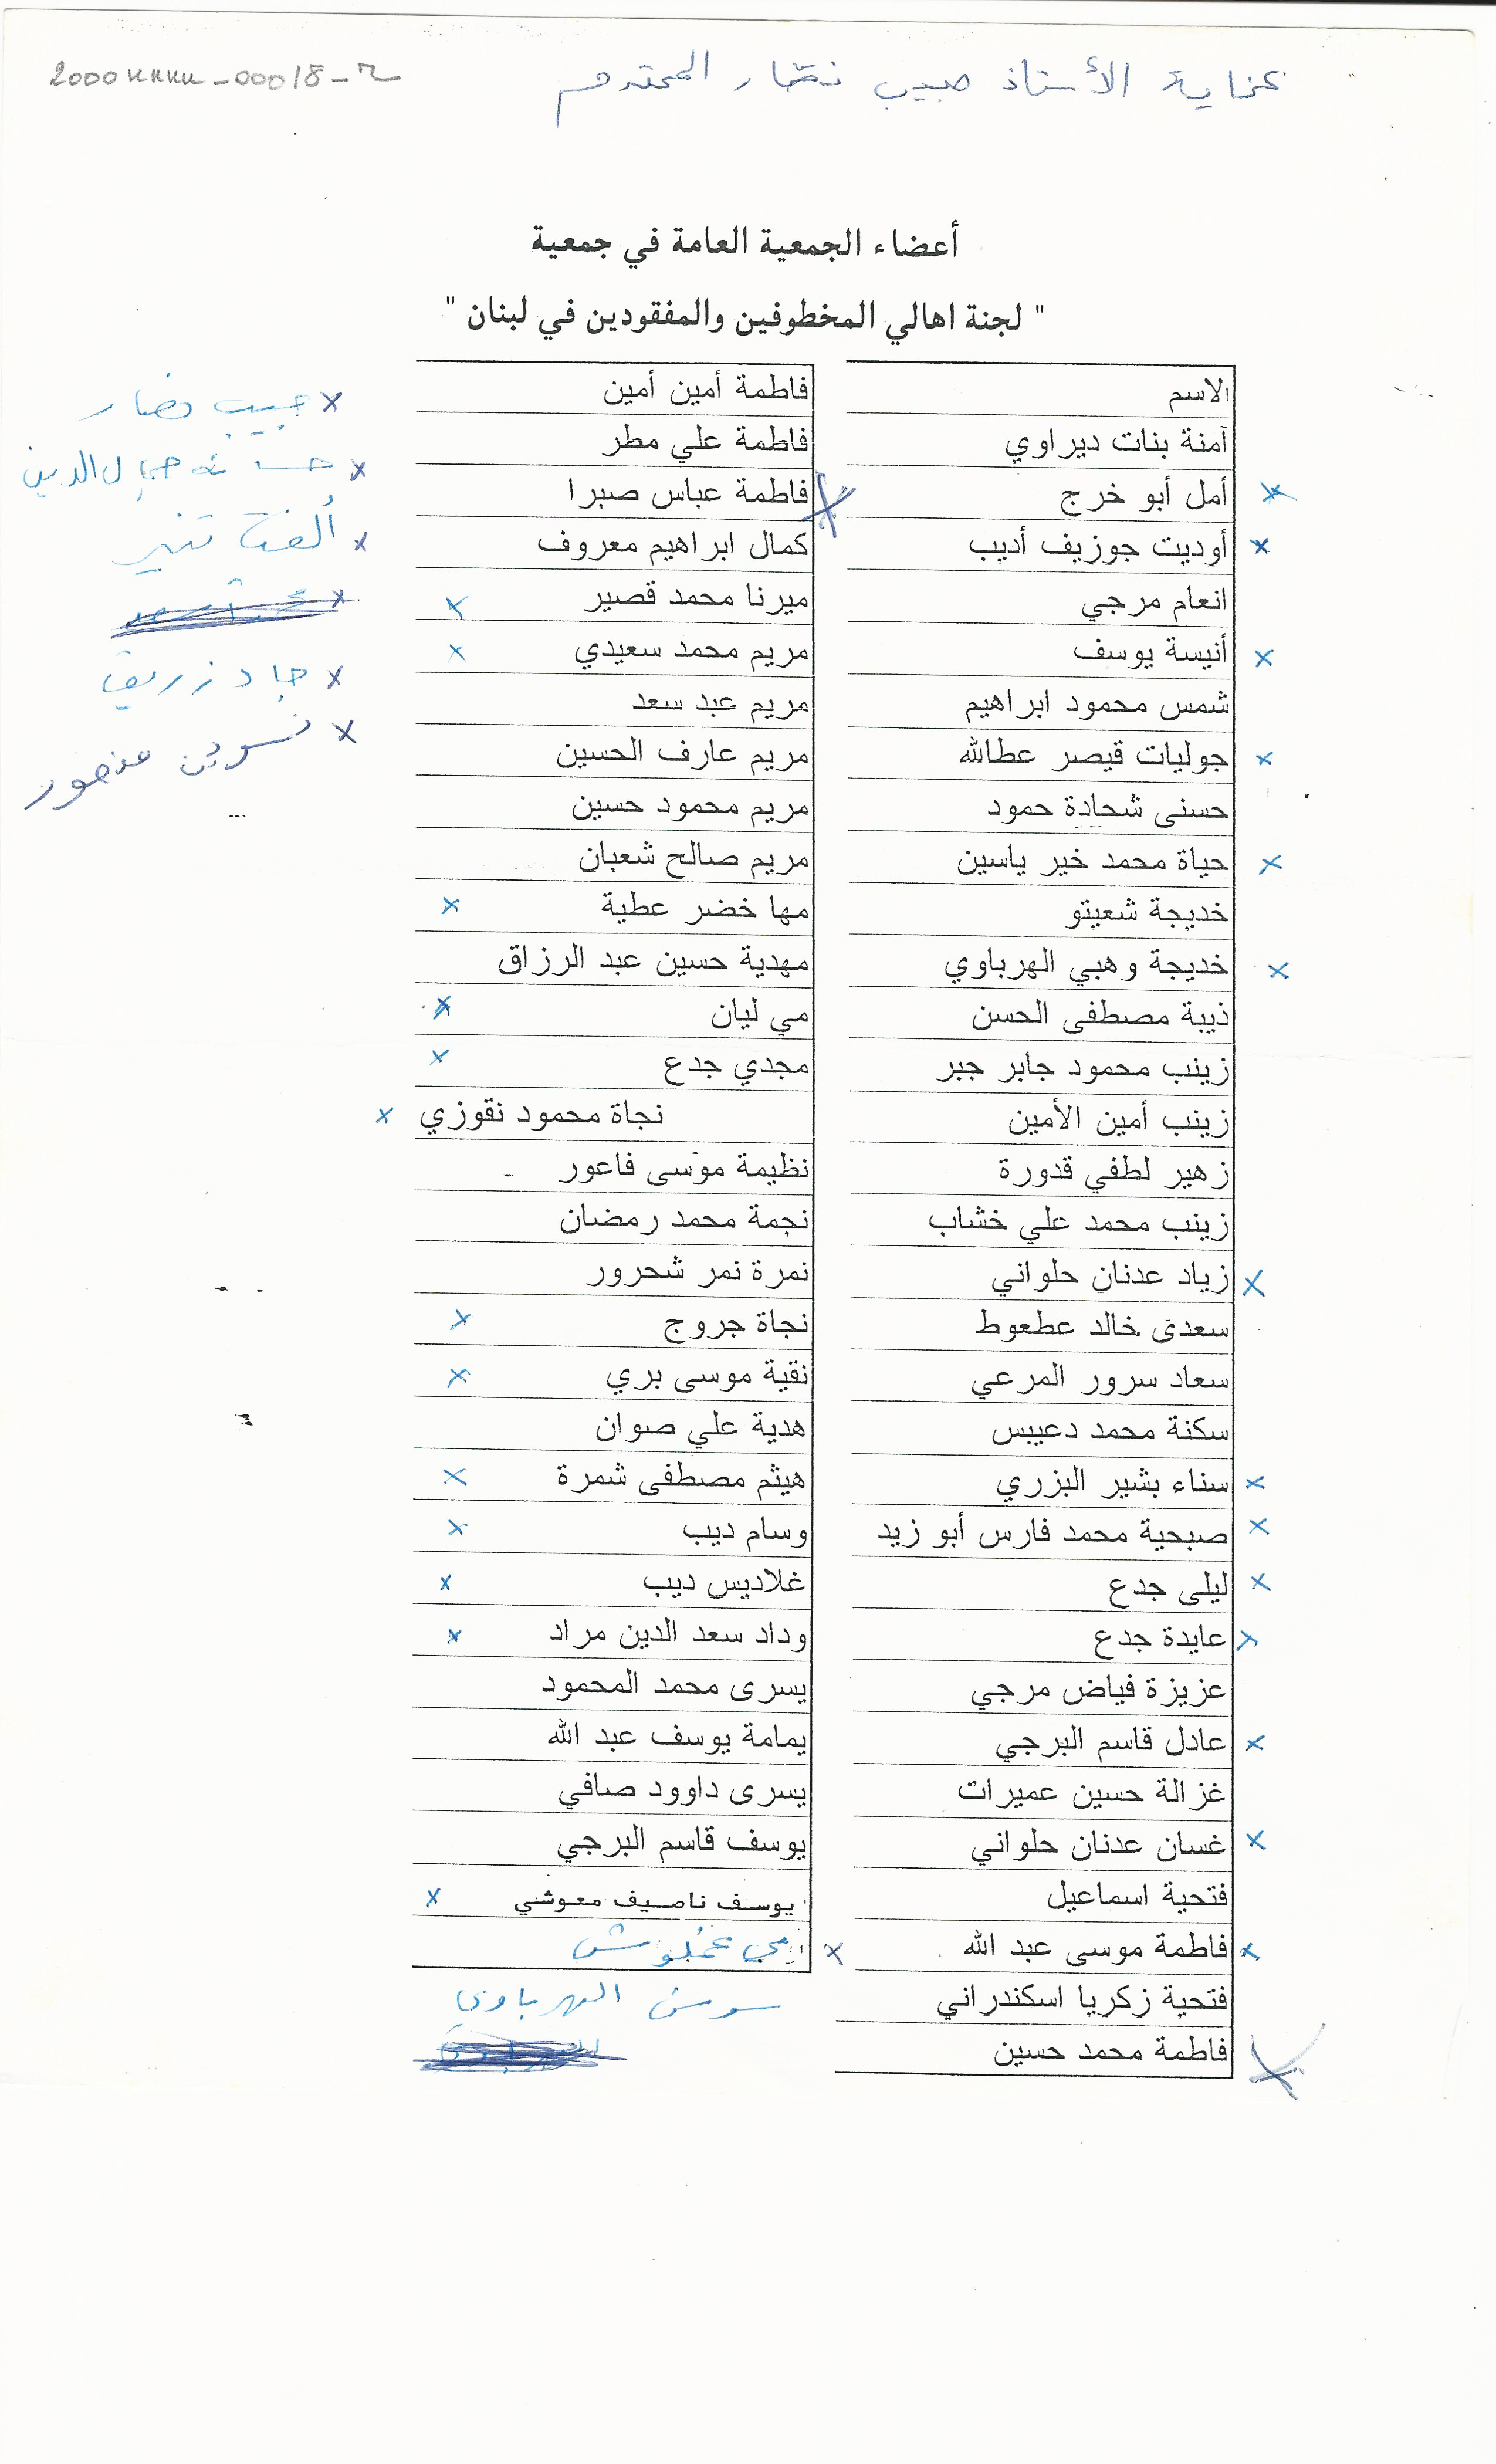 2000
بعناية الأستاذ حبيب نصّار المحترم
أعضاء الجمعية العامة في جمعية
" لجنة اهالي المخطوفين والمفقودين في لبنان "
الاسم
آمنة بنات ديراوي
x أمل أبو خرج
x أوديت جوزيف أديب
انعام مرجي
x أنيسة يوسف
شمس محمود ابراهيم
x جوليات قيصر عطالله
حسنى شحادة حمود
x حياة محمد خير ياسين
خديجة شعيتو
x خديجة وهبي الهرباوي
ذيبة مصطفى الحسن
زينب محمود جابر جبر
زينب أمين الأمين
زهير لطفي قدورة
زينب محمد علي خشاب
x زياد عدنان حلواني
سعدى خالد عطعوط
سعاد سرور المرعي
سكنة محمد دعيبس
x سناء بشير البزري
x صبحية محمد فارس أبو زيد
x ليلى جدع
x عايدة جدع
عزيزة فياض مرجي
x عادل قاسم البرجي
غزالة حسين عميرات
x غسان عدنان حلواني
فتحية اسماعيل
x فاطمة موسى عبد الله
فتحية زكريا اسكندراني
x فاطمة محمد حسين
فاطمة أمين أمين
فاطمة علي مطر
x فاطمة عباس صبرا
كمال ابراهيم معروف
ميرنا محمد قصير x
مريم محمد سعيدي x
مريم عبد سعد
مريم عارف الحسين
مريم محمود حسين
مريم صالح شعبان
مها خضر عطية x
مهدية حسين عبد الرزاق
مي ليان x
مجدي جدع x
نجاة محمود نقوزي x
نظيمة موسى فاعور
نجمة محمد رمضان
نمرة نمر شحرور
نجاة جروج x
نقية موسى بري x
هدية علي صوان
هيثم مصطفى شمرة x
وسام ديب x
غلاديس ديب x
وداد سعد الدين مراد x
يسرى محمد المحمود
يمامة يوسف عبد الله
يسرى داوود صافي
يوسف قاسم البرجي
يوسف ناصيف معوشي x
x
سوسن الهرباوي
x حبيب نصار
x حسانة جمال الدين
x ألفت تنير
x
x جاد زريق
x نسرين منصور